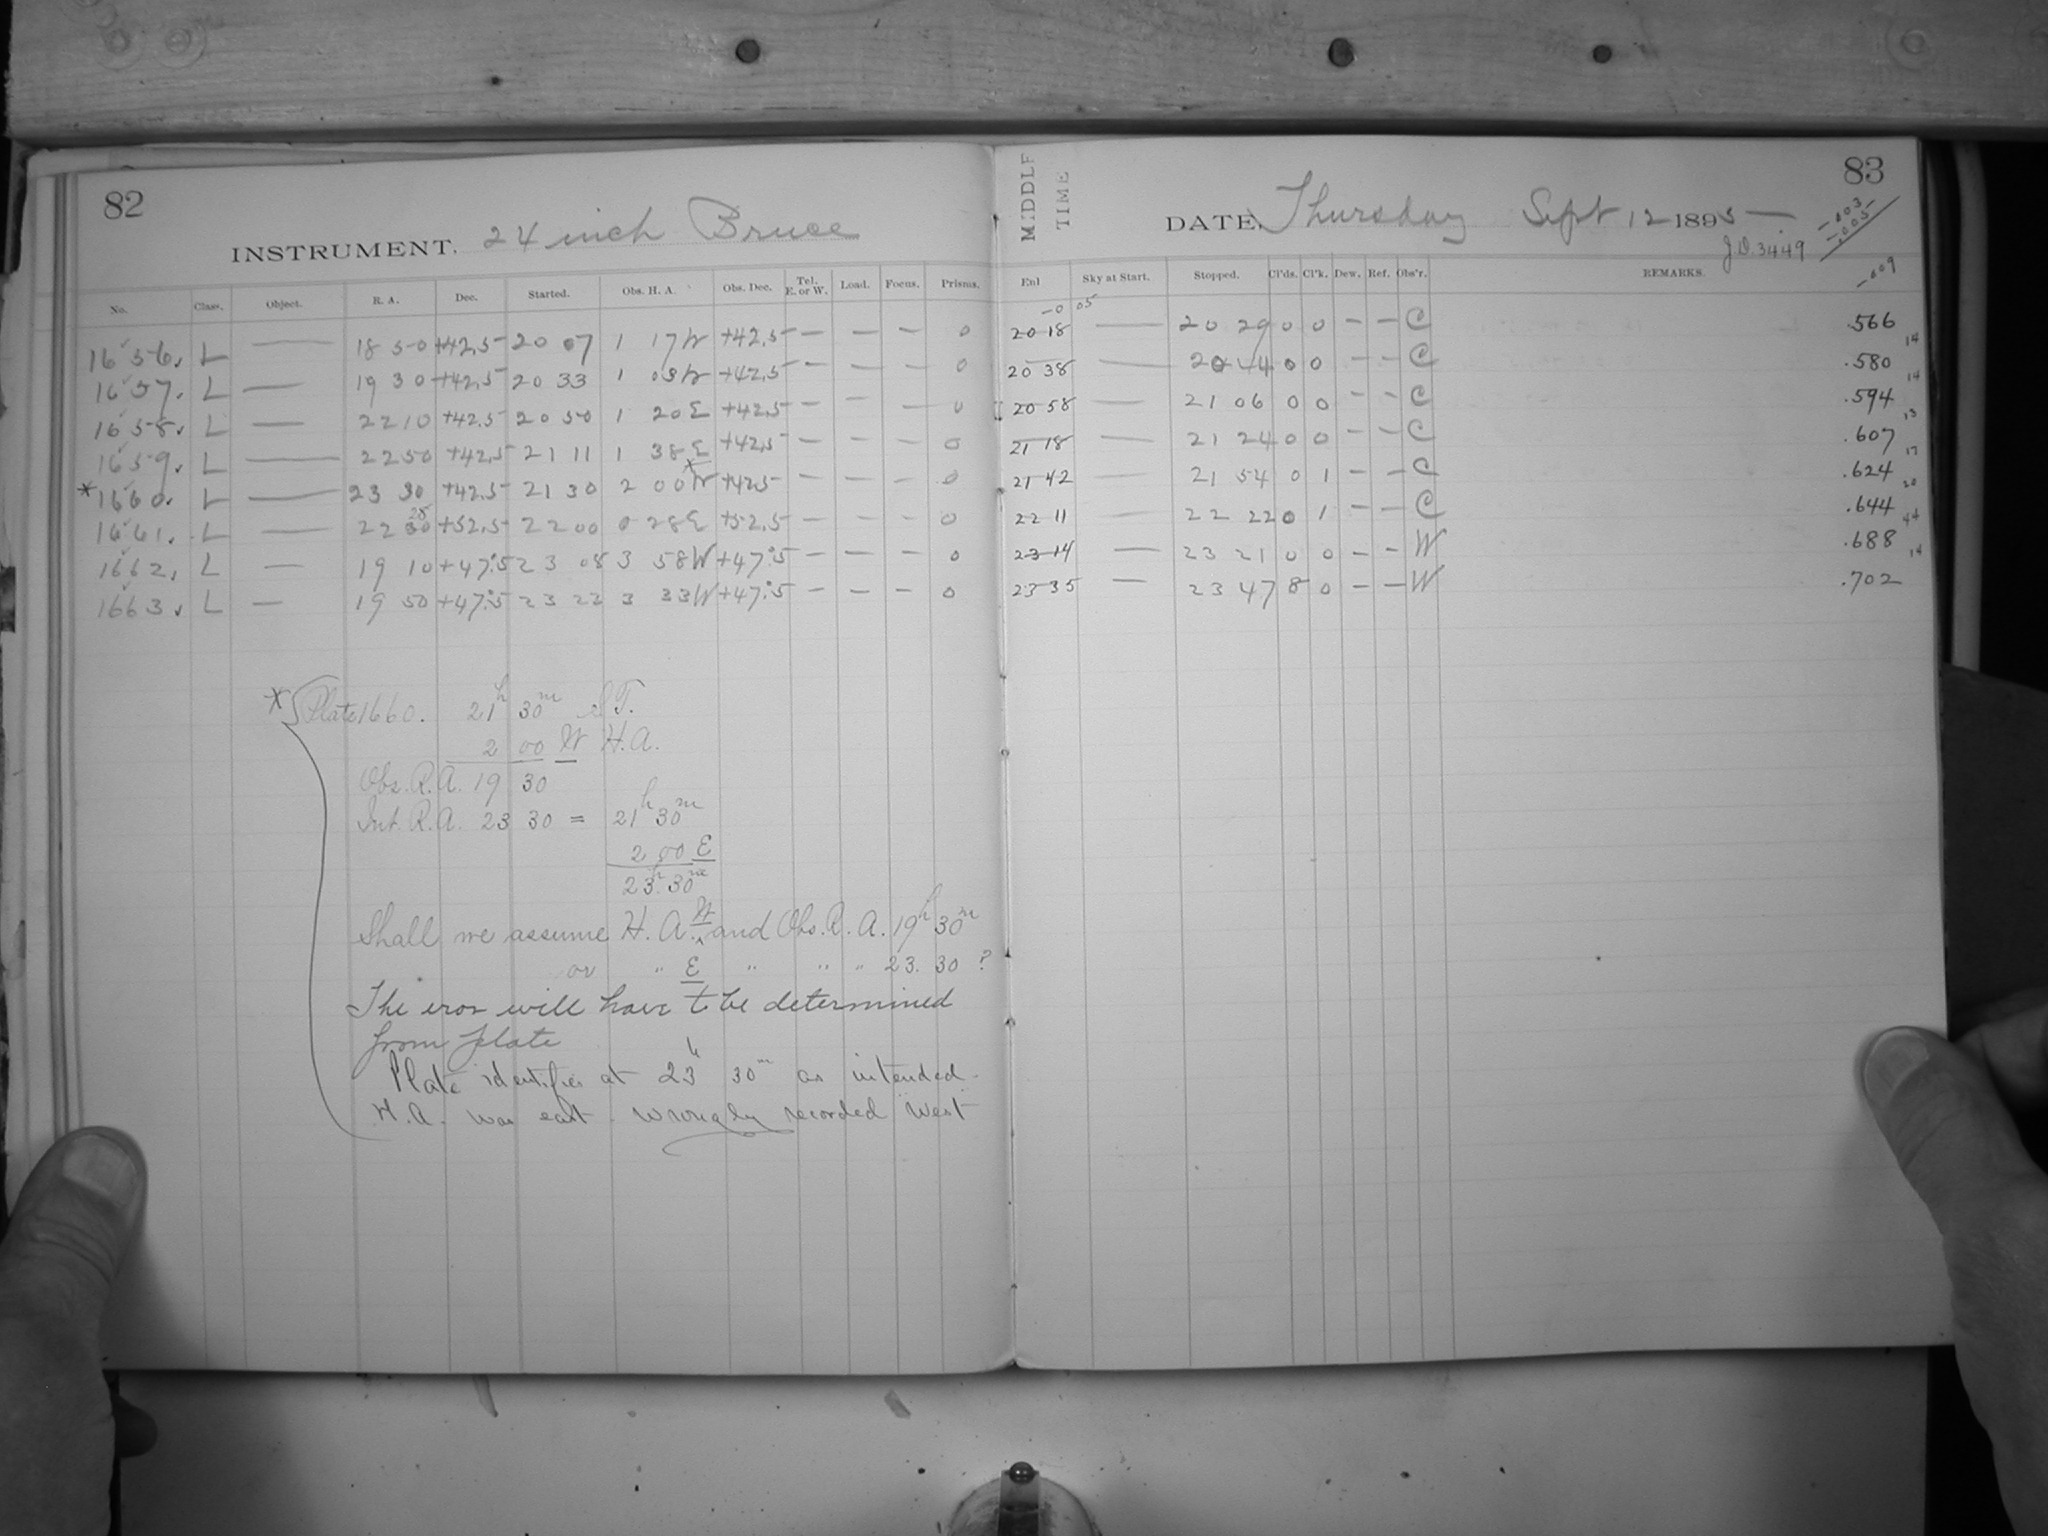 82
INSTRUMENT. 24 inch Bruce
No. Class. Object. R. A. Dec. Started. Obs. H. A. Obs. Dec. Tel. E. or W. Load. Focus. Prisms.
1656. L — 18 50 +42.5 20 07 1 17W +42.5 — — — 0
1657. L — 19 30 +42.5 20 33 1 03W +42.5 — — — 0
1658. L — 22 10 +42.5 20 50 1 20E +42.5 — — — 0
1659. L — 22 50 +42.5 21 11 1 38E +42.5 — — — 0
*1660. L — 23 30 +42.5 21 30 2 00W* +42.5 — — — 0
1661. L — 22 30 28 +52.5 22 00 0 28E +52.5 — — — 0
1662. L — 19 10 +47.5 23 08 3 58W +47.5 — — — 0
1663. L — 19 50 +47.5 23 22 3 33W +47.5 — — — 0
* Plate 1660. 21h 30m S.T.
2 00 W H.A.
Obs. R.A. 19 30
Int. R.A. 23 30 = 21h 30m
2 00 E
23h 30m
Shall we assume H. A. W and Obs. R. A. 19h 30m
or " E " " " 23. 30 ?
The eror will have to be determined
from plate
Plate identifies at 23h 30m as intended.
H.A. was east. wrongly recorded West
83
MIDDLE TIME
DATE, Thursday Sept 12 1895 —
J.D. 3449
-.003
-.005
-.009
Enl Sky at Start. Stopped. Cl'ds. Cl'k. Dew. Ref. Obs'r. REMARKS.
-0 05
20 18 — 20 29 0 0 — — C .566
14
20 38 — 20 44 0 0 — — C .580
14
20 58 — 21 06 0 0 — — C .594
13
21 18 — 21 24 0 0 — — C .607
17
21 42 — 21 54 0 1 — — C .624
20
22 11 — 22 22 0 1 — — C .644
44
23 14 — 23 21 0 0 — — W .688
14
23 35 — 23 47 8 0 — — W .702